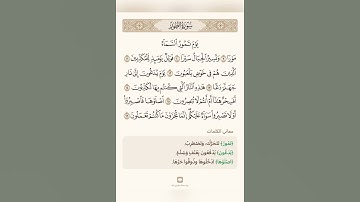 سُورَةُ الطُّورِ
يَوْمَ تَمُورُ ٱلسَّمَآءُ
مَوْرًا ٩ وَتَسِيرُ ٱلْجِبَالُ سَيْرًا ١٠ فَوَيْلٌ يَوْمَئِذٍ لِّلْمُكَذِّبِينَ ١١
ٱلَّذِينَ هُمْ فِى خَوْضٍ يَلْعَبُونَ ١٢ يَوْمَ يُدَعُّونَ إِلَىٰ نَارِ
جَهَنَّمَ دَعًّا ١٣ هَٰذِهِ ٱلنَّارُ ٱلَّتِى كُنتُم بِهَا تُكَذِّبُونَ ١٤
أَفَسِحْرٌ هَٰذَآ أَمْ أَنتُمْ لَا تُبْصِرُونَ ١٥ ٱصْلَوْهَا فَٱصْبِرُوٓا۟
أَوْ لَا تَصْبِرُوا۟ سَوَآءٌ عَلَيْكُمْ إِنَّمَا تُجْزَوْنَ مَا كُنتُمْ تَعْمَلُونَ ١٦
معاني الكلمات
﴿تَمُورُ﴾ تَتَحَرَّكُ، وَتَضْطَرِبُ.
﴿يُدَعُّونَ﴾ يُدْفَعُونَ بِعُنْفٍ وَشِدَّةٍ.
﴿اصْلَوْهَا﴾ ادْخُلُوهَا وَذُوقُوا حَرَّهَا.